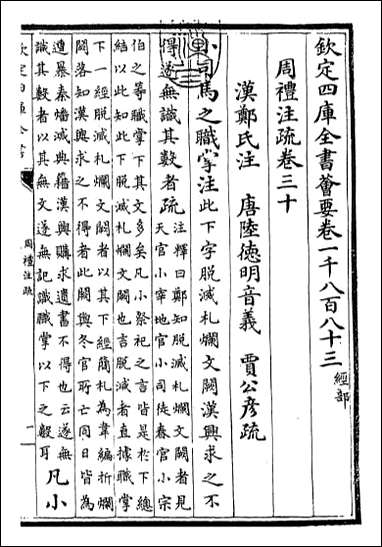 欽定四庫全書薈要卷一千八百八十三 經部
周禮注疏卷三十
漢鄭氏注 唐陸德明音義 賈公彦疏
小司馬之職掌注此下字脱滅札爛文闕漢興求之不
得遂無識其數者疏注釋曰鄭知脱滅札爛文闕者見
天官小宰地官小司徒春官小宗
伯之等職掌下其文多矣凡小祭祀之言皆是於下總
結以此知此下脱滅札爛文闕也言脱滅者直據職掌
下一經脱滅札爛文闕者以其下經簡札為韋編折爛
闕落知漢興求之不得者此闕與冬官所亡同日皆為
遭暴秦燔滅典籍漢興購求遺書不得也云遂無
識其數者以其無文遂無記識職掌以下之數耳 凡小
欽定四庫全書
周禮注疏
一